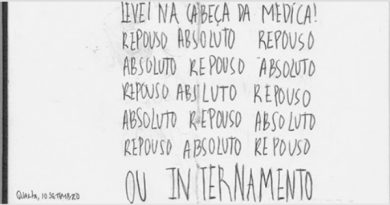 LEVEI NA CABEÇA DA MÉDICA!
REPOUSO ABSOLUTO REPOUSO
ABSOLUTO REPOUSO ABSOLUTO
REPOUSO ABSLUTO REPOUSO
ABSOLUTO REPOUSO ABSOLUTO
REPOUSO ABSOLUTO REPOUSO
OU INTERNAMENTO
Quarta, 10 SETEMBRO